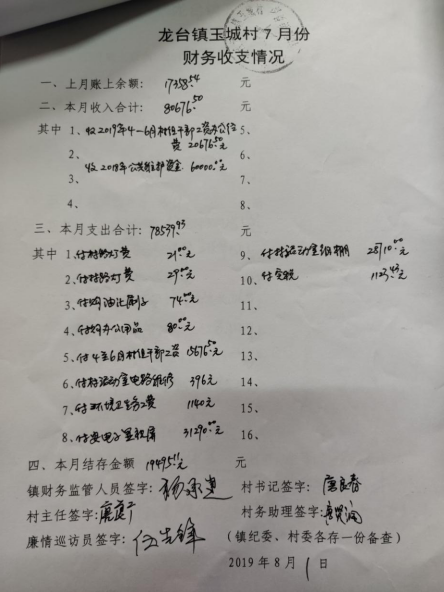 龙台镇玉城村7月份
财务收支情况
一、上月账上余额：17358.54 元
二、本月收入合计：80676.50 元
其中 1、收2019年4—6月村组干部工资办公经费 20676.50元 5、
2、收2018年公共维护资金 60000.00元 6、
3、 7、
4、 8、
三、本月支出合计：78539.93 元
其中 1、付村路灯费 21.00元 9、付村活动室钢棚 25710.00元
2、付村路灯费 29.00元 10、付交税 1123.43元
3、付购油比刷子 74.00元 11、
4、付购办公用品 80.00元 12、
5、付4至6月村组干部工资 15676.50元 13、
6、付村活动室电路维修 396元 14、
7、付环境卫生务工费 1140元 15、
8、付安电子显视屏 31290.00元 16、
四、本月结存金额 19495.11 元
镇财务监管人员签字： 村书记签字：
村主任签字： 村务助理签字：
廉情巡访员签字：伍先锋 （镇纪委、村委各存一份备查）
2019年8月1日